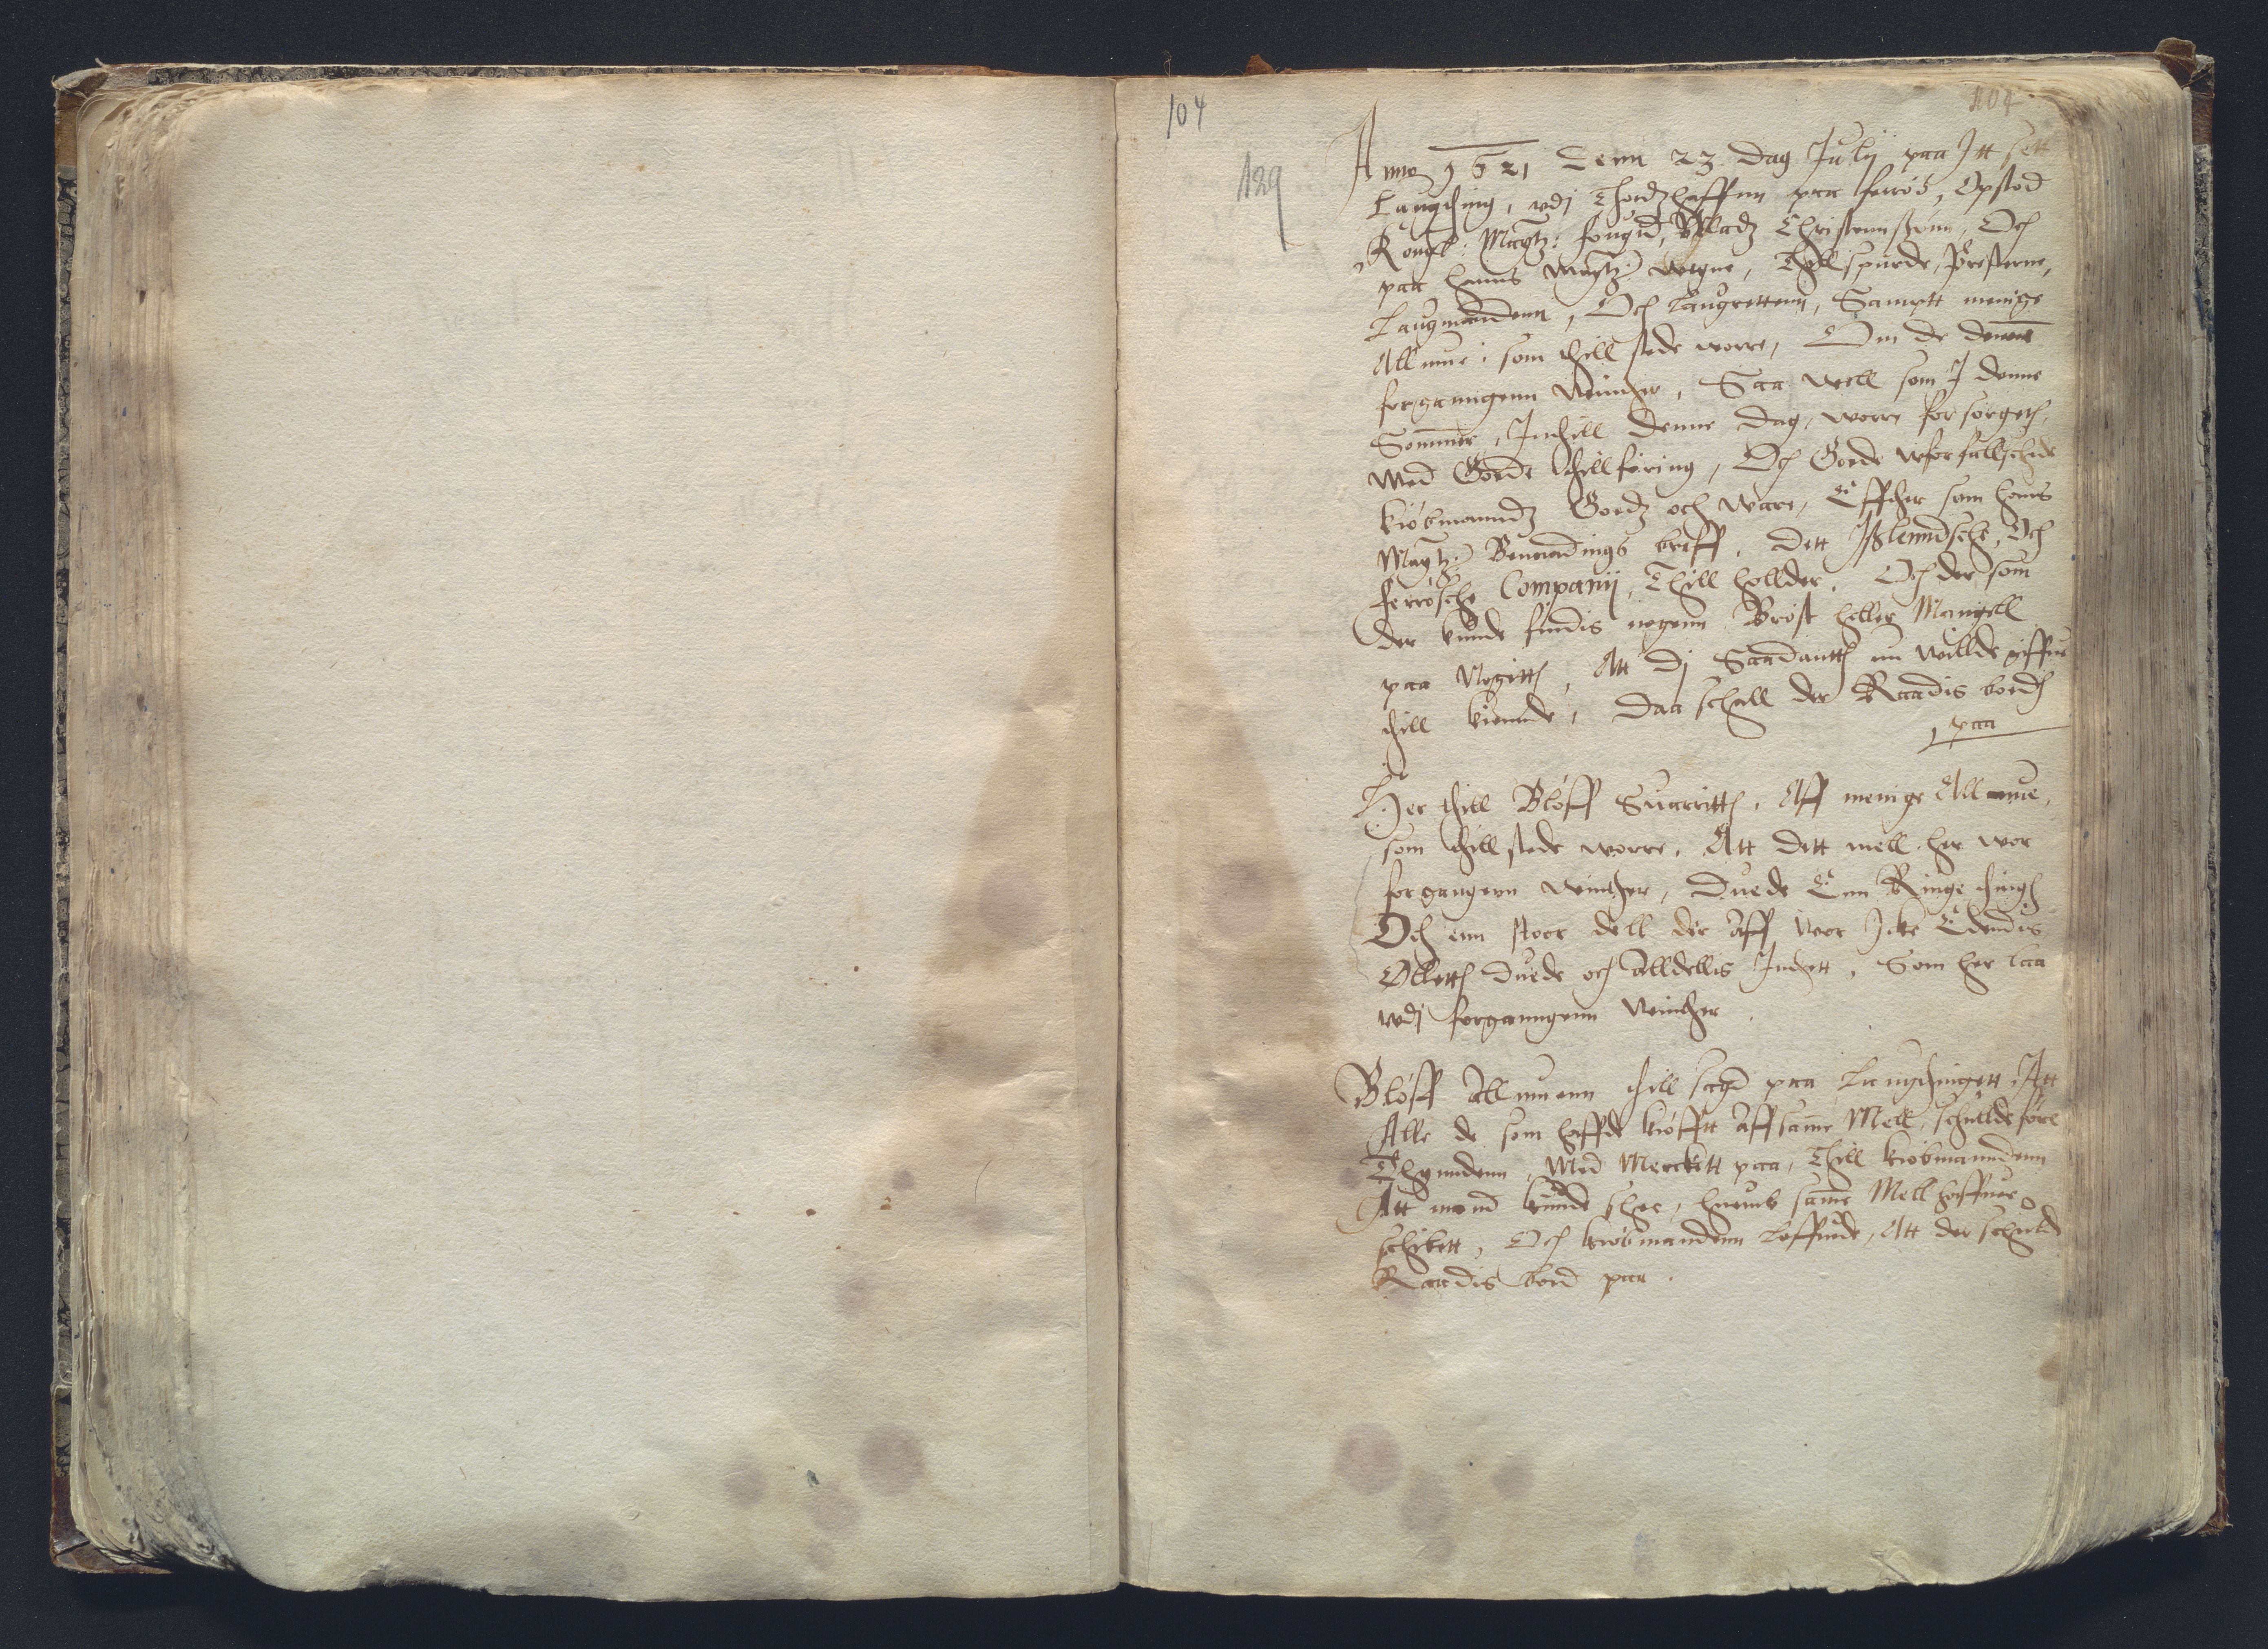 104
104
129
Anno 1621 Denn 23 Dag Julij paa Itt sett
Laugthing, vdj Thordzhaffnn paa Ferröe, Opstod
Kongl: Magtz: fougid, Chrístennßönn, Och
paa hanns Magtz: wegne, Thillspurde, Presterne,
Laugmandenn, Och Laugrettenn, Sampt menige
Allmue, som thill stede worre, Om de denne
forgaangenn Winther, Saa well som I denne
Sommer, Inthill Denne Dag, worre forsörgeth,
Med Goede thillföring, Och Goede wforfallschede
kiöbmanndz Goedz och Ware, Effther som hans
Magtz: Benaadings breff, dett Ißlenndsche, Och
Ferrösche Companij, Thill holder, Och der som
der kunde findis nogenn Bröst heller Manngell
paa Nogitth, Att dj Saadantth nu willde giffue
thill kiennde, Daa schall der Raadis boed
paa
Her thill Bleff Suarritth, Aff menige Allmue,
som thill stede worre, Att dett mell her wor
forgangenn winther, Duede Enn Ringe thingh
Och enn stoor dell der aff woor Icke Edendis
Ölletth duede och alldellis Inthett, Som her laa
vdj forganngenn Winther.
Bleff Allmuenn thill sagd paa Laugthingett, Att
Alle de som haffde kiöfft aff samme Mell, schulde före
Thynndenn, Med Merckitt paa, Thill kiöbmanndenn
Att mand kunde See, huem samme Mell haffuer
schickett, Och kiöbmandenn loffuede, Att der schulde
Raadis boed paa.